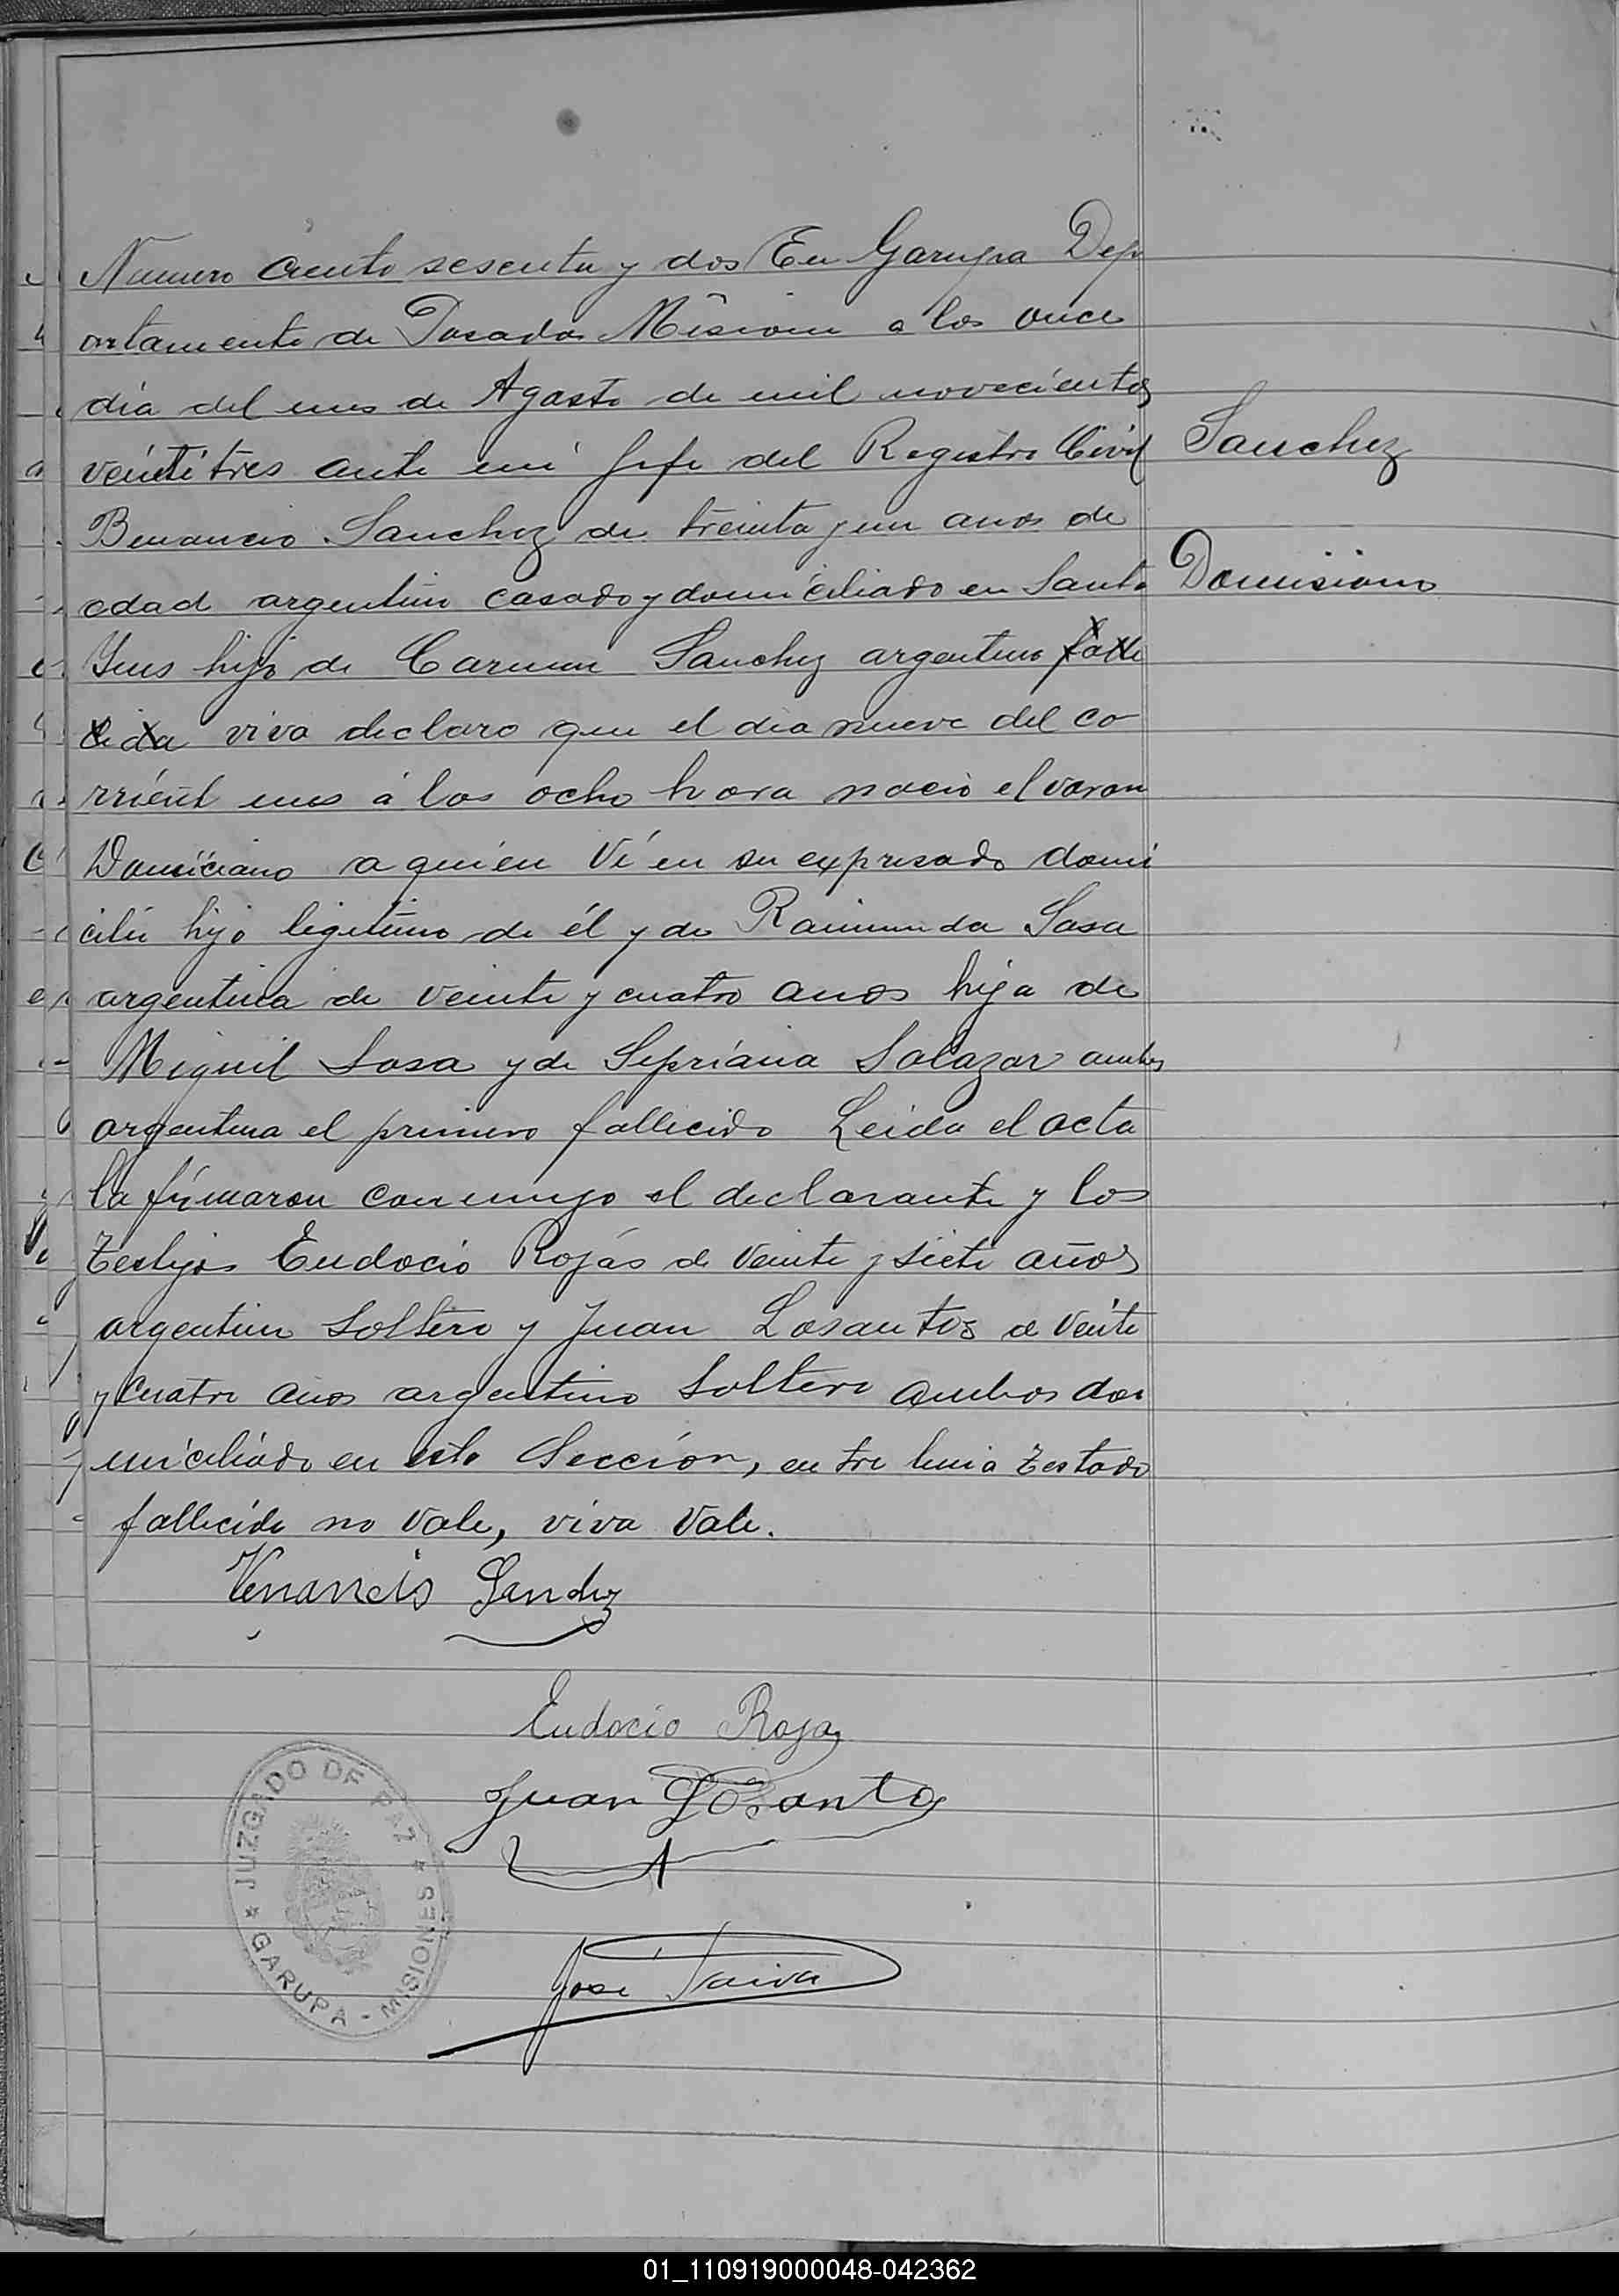 Numero ciento sesenta y dos En Garupa Dep
artamento de Posadas Misiones a los once
dia del mes de Agosto de mil novecientos
veintitres ante mi Jefe del Registro Civil
Sanchez
Benancio Sanchez de treinta y un anos de
edad argentino casado y domiciliado en Santa
Domisiano
Ines hijo de Carmen Sanchez argentino falle
cida viva declaro que el dia nueve del co
rrient mes á las ocho hora nacio el varon
Domiciano a quien Ví en su expresado domi
cilio hijo legitimo de él y de Raimunda Sosa
argentina de veinte y cuatro anos hija de
Miguil Sosa y de Sepriana Salazar ambos
argentina el primero fallecido Leida el acta
la firmaron conmigo el declarante y los
testigos Eudocio Rojas de veinte y siete años
argentino Soltero y Juan Losantos de veinte
y cuatro anos argentino Soltero ambos do
miciliado en esta Sección, entre linia testado
fallecido no vale, viva vale.
Venancio Sanchez
Eudocio Rojas
Juan Losantos
José Paiva
JUZGADO DE PAZ
GARUPA - MISIONES
01_110919000048-042362